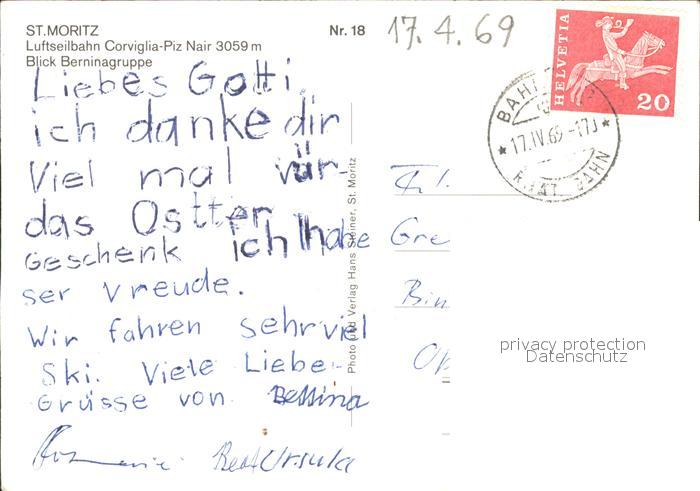 ST. MORITZ
Luftseilbahn Corviglia-Piz Nair 3059 m
Blick Berninagruppe
Nr. 18
17.4.69
HELVETIA
20
BAH
17.IV.69-17
BAHN
Liebes Gotti.
ich danke dir
Viel mal vür-
das Ostter
Geschenk ich habe
ser vreude.
Wir fahren sehr viel
Ski. Viele Liebe-
Grüsse von Bettina
Beat Ursula
Photo und Verlag Hans Steiner, St. Moritz
Frl.
Gre
Bin
privacy protection
Datenschutz